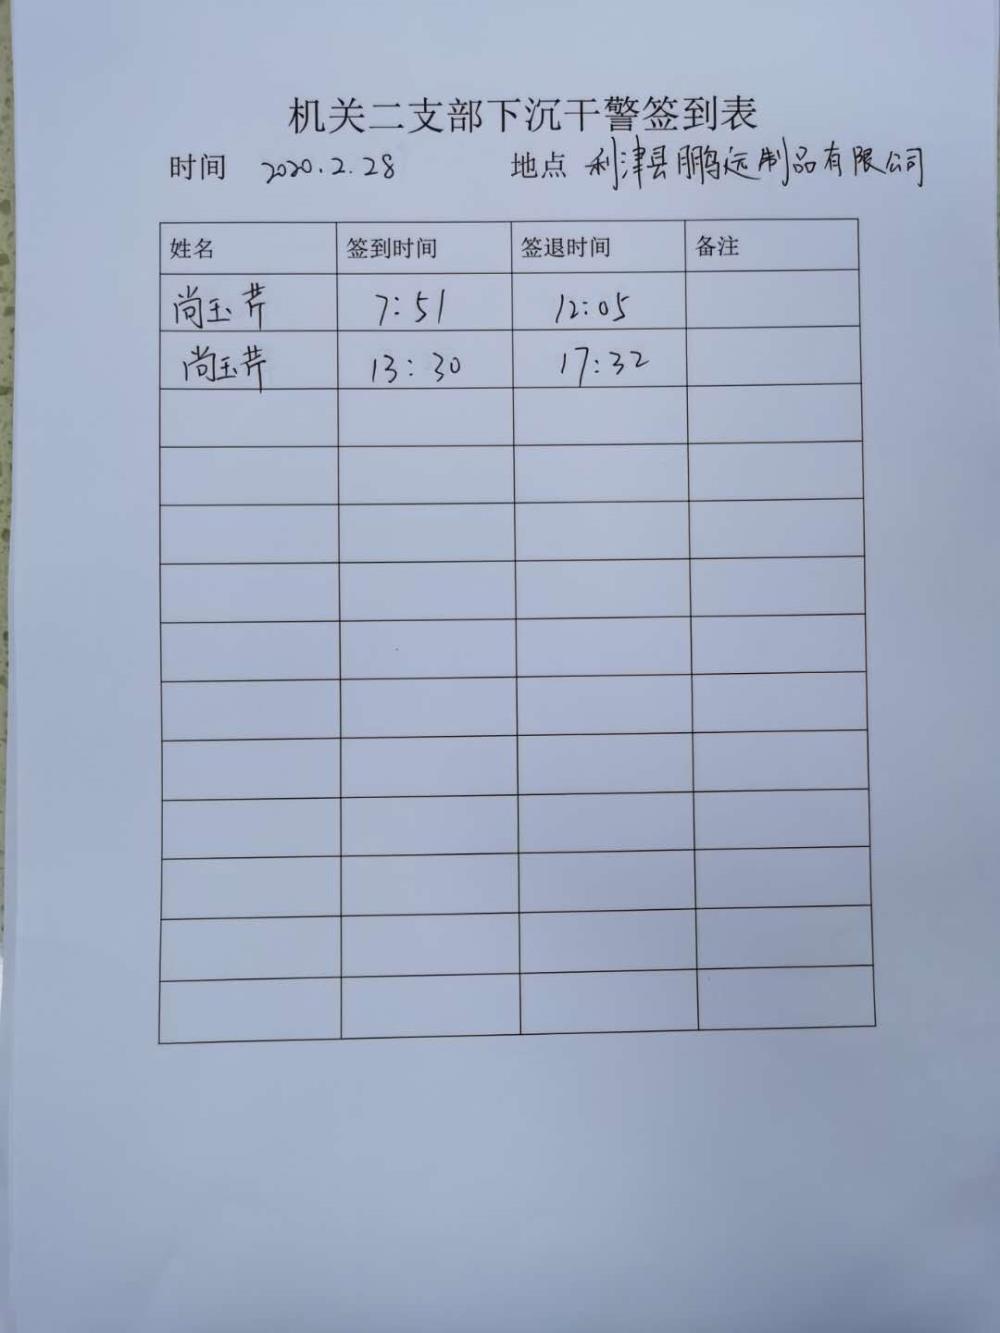 机关二支部下沉干警签到表
时间 2020.2.28 地点 利津县鹏远制品有限公司
姓名 签到时间 签退时间 备注
尚玉芹 7:51 12:05
尚玉芹 13:30 17:32